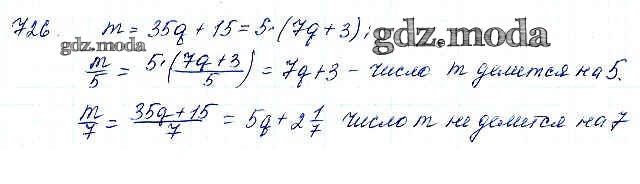 726. m = 35q + 15 = 5·(7q + 3);
gdz.moda gdz.moda
m/5 = 5·(7q + 3)/5 = 7q + 3 – число m делится на 5.
m/7 = 35q + 15/7 = 5q + 2 1/7 число m не делится на 7